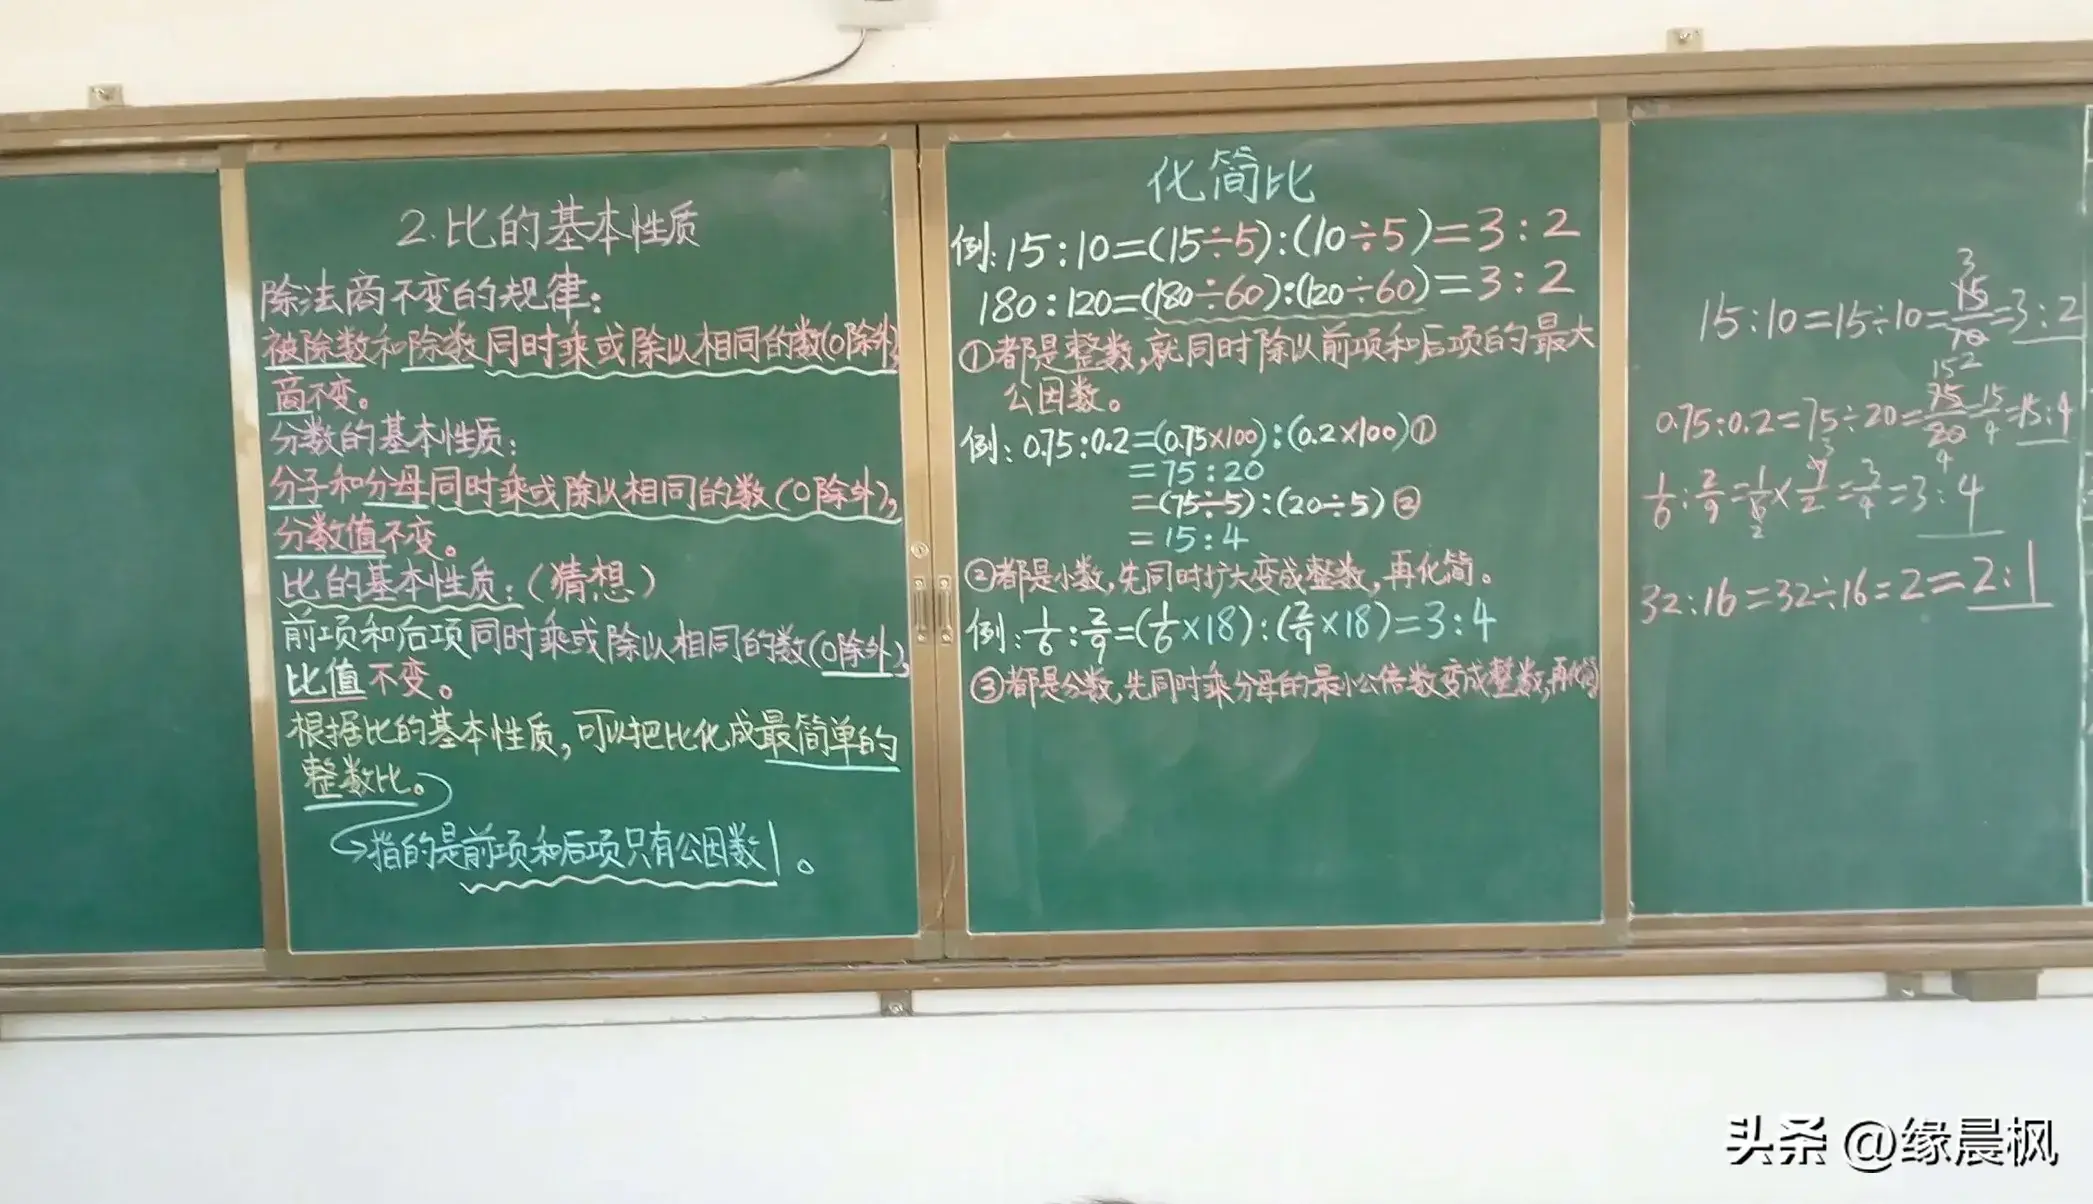 2.比的基本性质
除法商不变的规律:
被除数和除数同时乘或除以相同的数(0除外),
商不变。
分数的基本性质:
分子和分母同时乘或除以相同的数(0除外),
分数值不变。
比的基本性质:(猜想)
前项和后项同时乘或除以相同的数(0除外),
比值不变。
根据比的基本性质,可以把比化成最简单的
整数比。
指的是前项和后项只有公因数1。
化简比
例:15:10=(15÷5):(10÷5)=3:2
180:120=(180÷60):(120÷60)=3:2
①都是整数,就同时除以前项和后项的最大
公因数。
例:0.75:0.2=(0.75×100):(0.2×100)①
=75:20
=(75÷5):(20÷5)②
=15:4
②都是小数,先同时扩大变成整数,再化简。
例:1/6:2/9=(1/6×18):(2/9×18)=3:4
③都是分数,先同时乘分母的最小公倍数变成整数,再化简
15:10=15÷10=15/10=3:2
0.75:0.2=75÷20=75/20=15/4=15:4
1/6:2/9=1/6×9/2=3/4=3:4
32:16=32÷16=2=2:1
头条 @缘晨枫